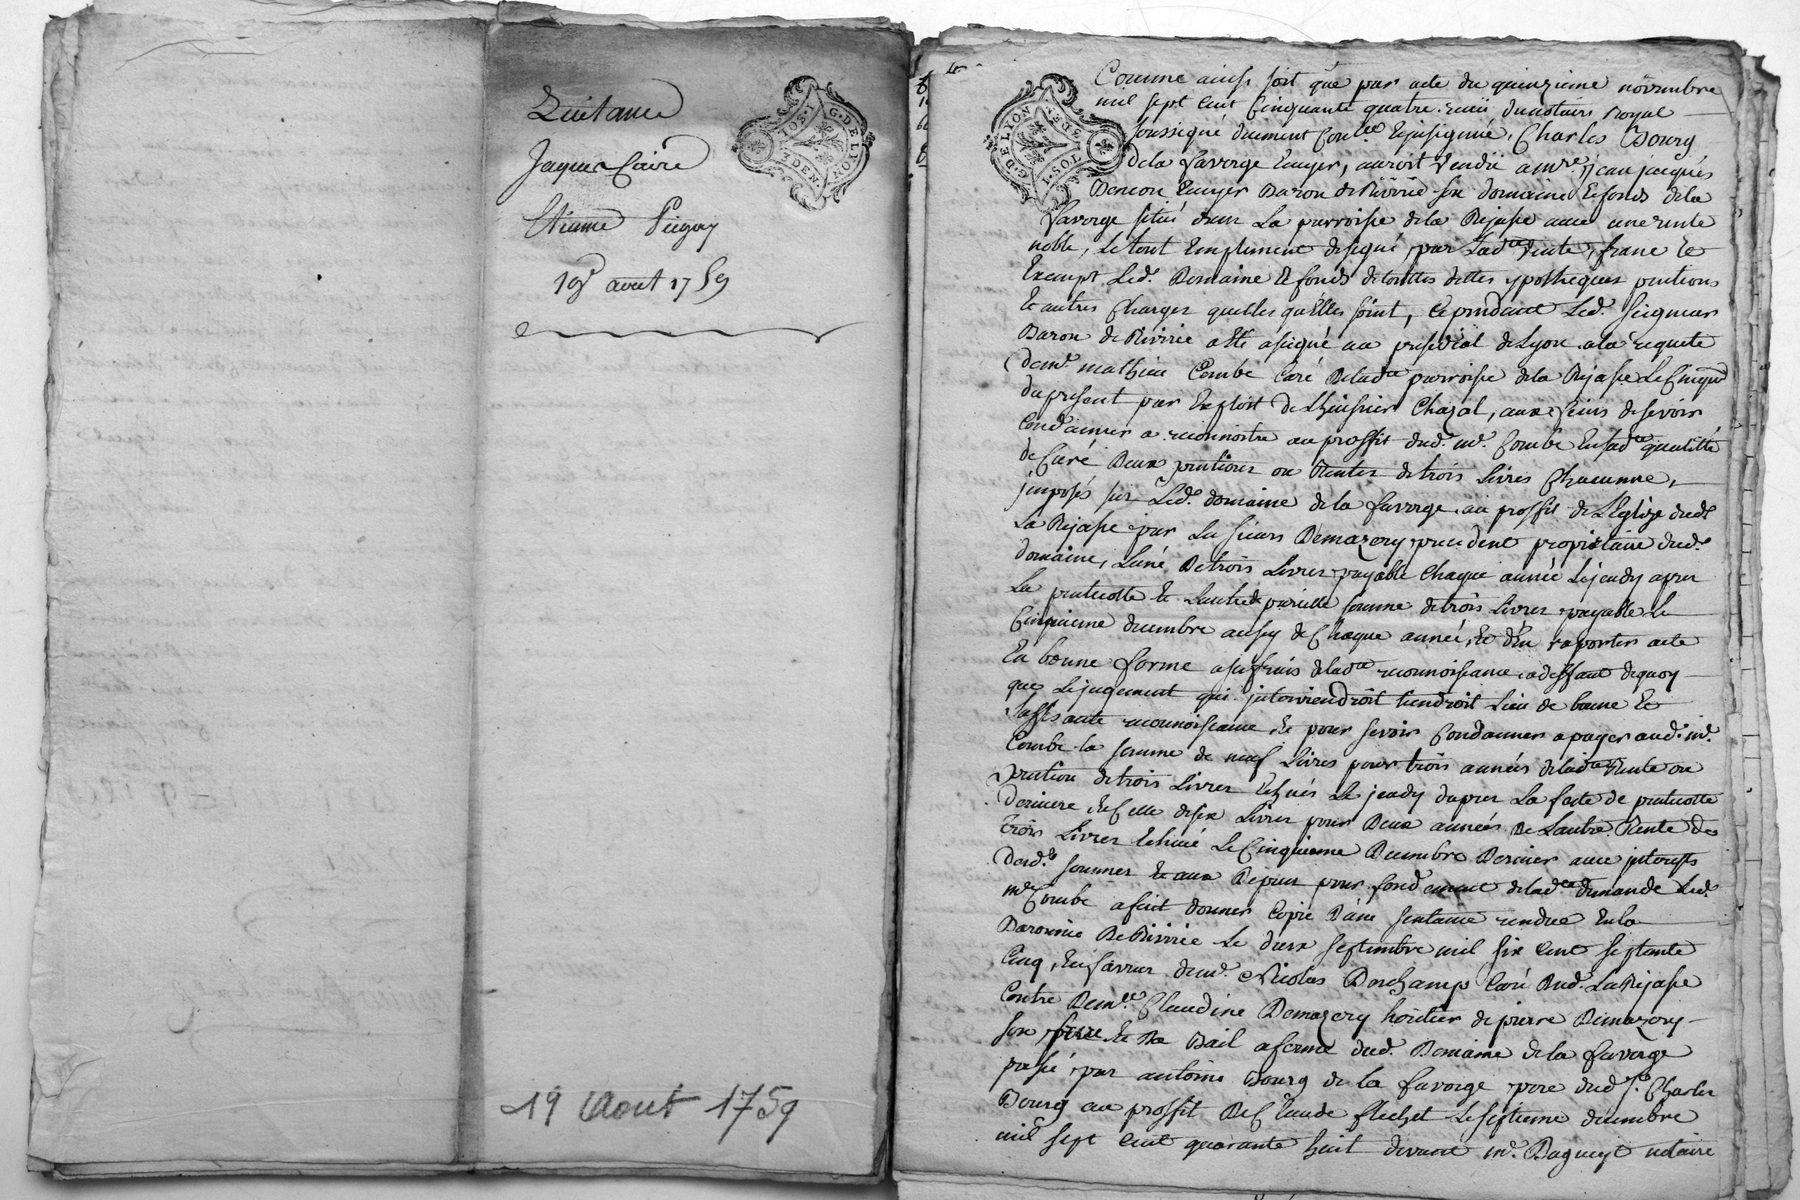 Quitance
Jaque Caire
Etienne Pugay
19 aout 1759
G. DE LYON
I. SOL
DEN.
19 Aout 1759
G. DE LYON
I. SOL
DEN.
Comme ainsi soit que par acte du quinzieme novembre
mil sept cent Cinquante quatre, recu du notaire Royal
soussigné duement Con.lée Expisignnié, Charles Bourg
de la faverge Ecuyer, auroit Vendü a m.re jean jacques
Ecuyer Baron de Riviríe son domaine & fonds de la
faverge situé dans La parroisse de la Rejasse avec une rente
noble, le tout Emplement designé par Lad.te Vente, franc Et
Exempt Led. Domaine & fonds de touttes dettes ypotheques pentions
Et autres Charges quelles quelles soint, Cependant Led. Seigneur
Baron de Rivirie a Eté asigné au presidial de Lyon a la requete
de m.e mathieu Combe Curé de lad.te parroisse de la Rejasse Le Cinq.e
du present par Exploit de Lhuissier Chazal, aux fins de se voir
Condamner a reconnoitre au proffit dud. m.e Combe En sad.te qualitté
de Curé Deux pentions ou Rentes de trois Livres Chacunne,
jmposés sur Led. domaine de la faverge au proffit de L'Eglize dud.t
La Rejasse par Le sieur Demazery precedent propriétaire dud.
domaine, L'une De trois Livres payable Chaque année Le jeudy apres
La pentecotte Et Lautre de pareille somme de trois Livres payable Le
Cinquieme decembre aussy de Chaque année, Et d'En raporter acte
En bonne forme a ses frais de lad.te reconnoissance a deffaut de quoy
que Le jugement qui jnterviendroit tiendroit Lieu de bonne Et
suffisante reconnoissance, Et pour se voir Condamner a payer aud. m.e
Combe la somme de neuf Livres pour trois années de lad.te Rente ou
pention de trois Livres Echues Le jeudy d'apres La feste de pentecotte
derniere, Et Celle de six Livres pour Deux années De Lautre Rente de
trois Livres Echüe Le Cinquieme Decembre Dernier avec jnterests
desd.es sommes Et aux Depens pour fondement de lad.te demande Led.
m.e Combe a fait donner Copie D'une sentance rendue En la
Baronnie De Rivirie Le deux septembre mil six cent septante
Cinq, En faveur de m.e Nicolas Deschamp Curé Dud. La Rejasse
Contre Dem.lle Claudine Demazery heritier de pierre Demazery
son pere Et Du Bail a ferme dud. Domaine de la faverge
passé par antoine Bourg de la faverge pere dud. S.r Charles
Bourg au proffit De Claude flechet Le septieme decembre
mil sept cent quarante huit devant m.e Bagueyt notaire